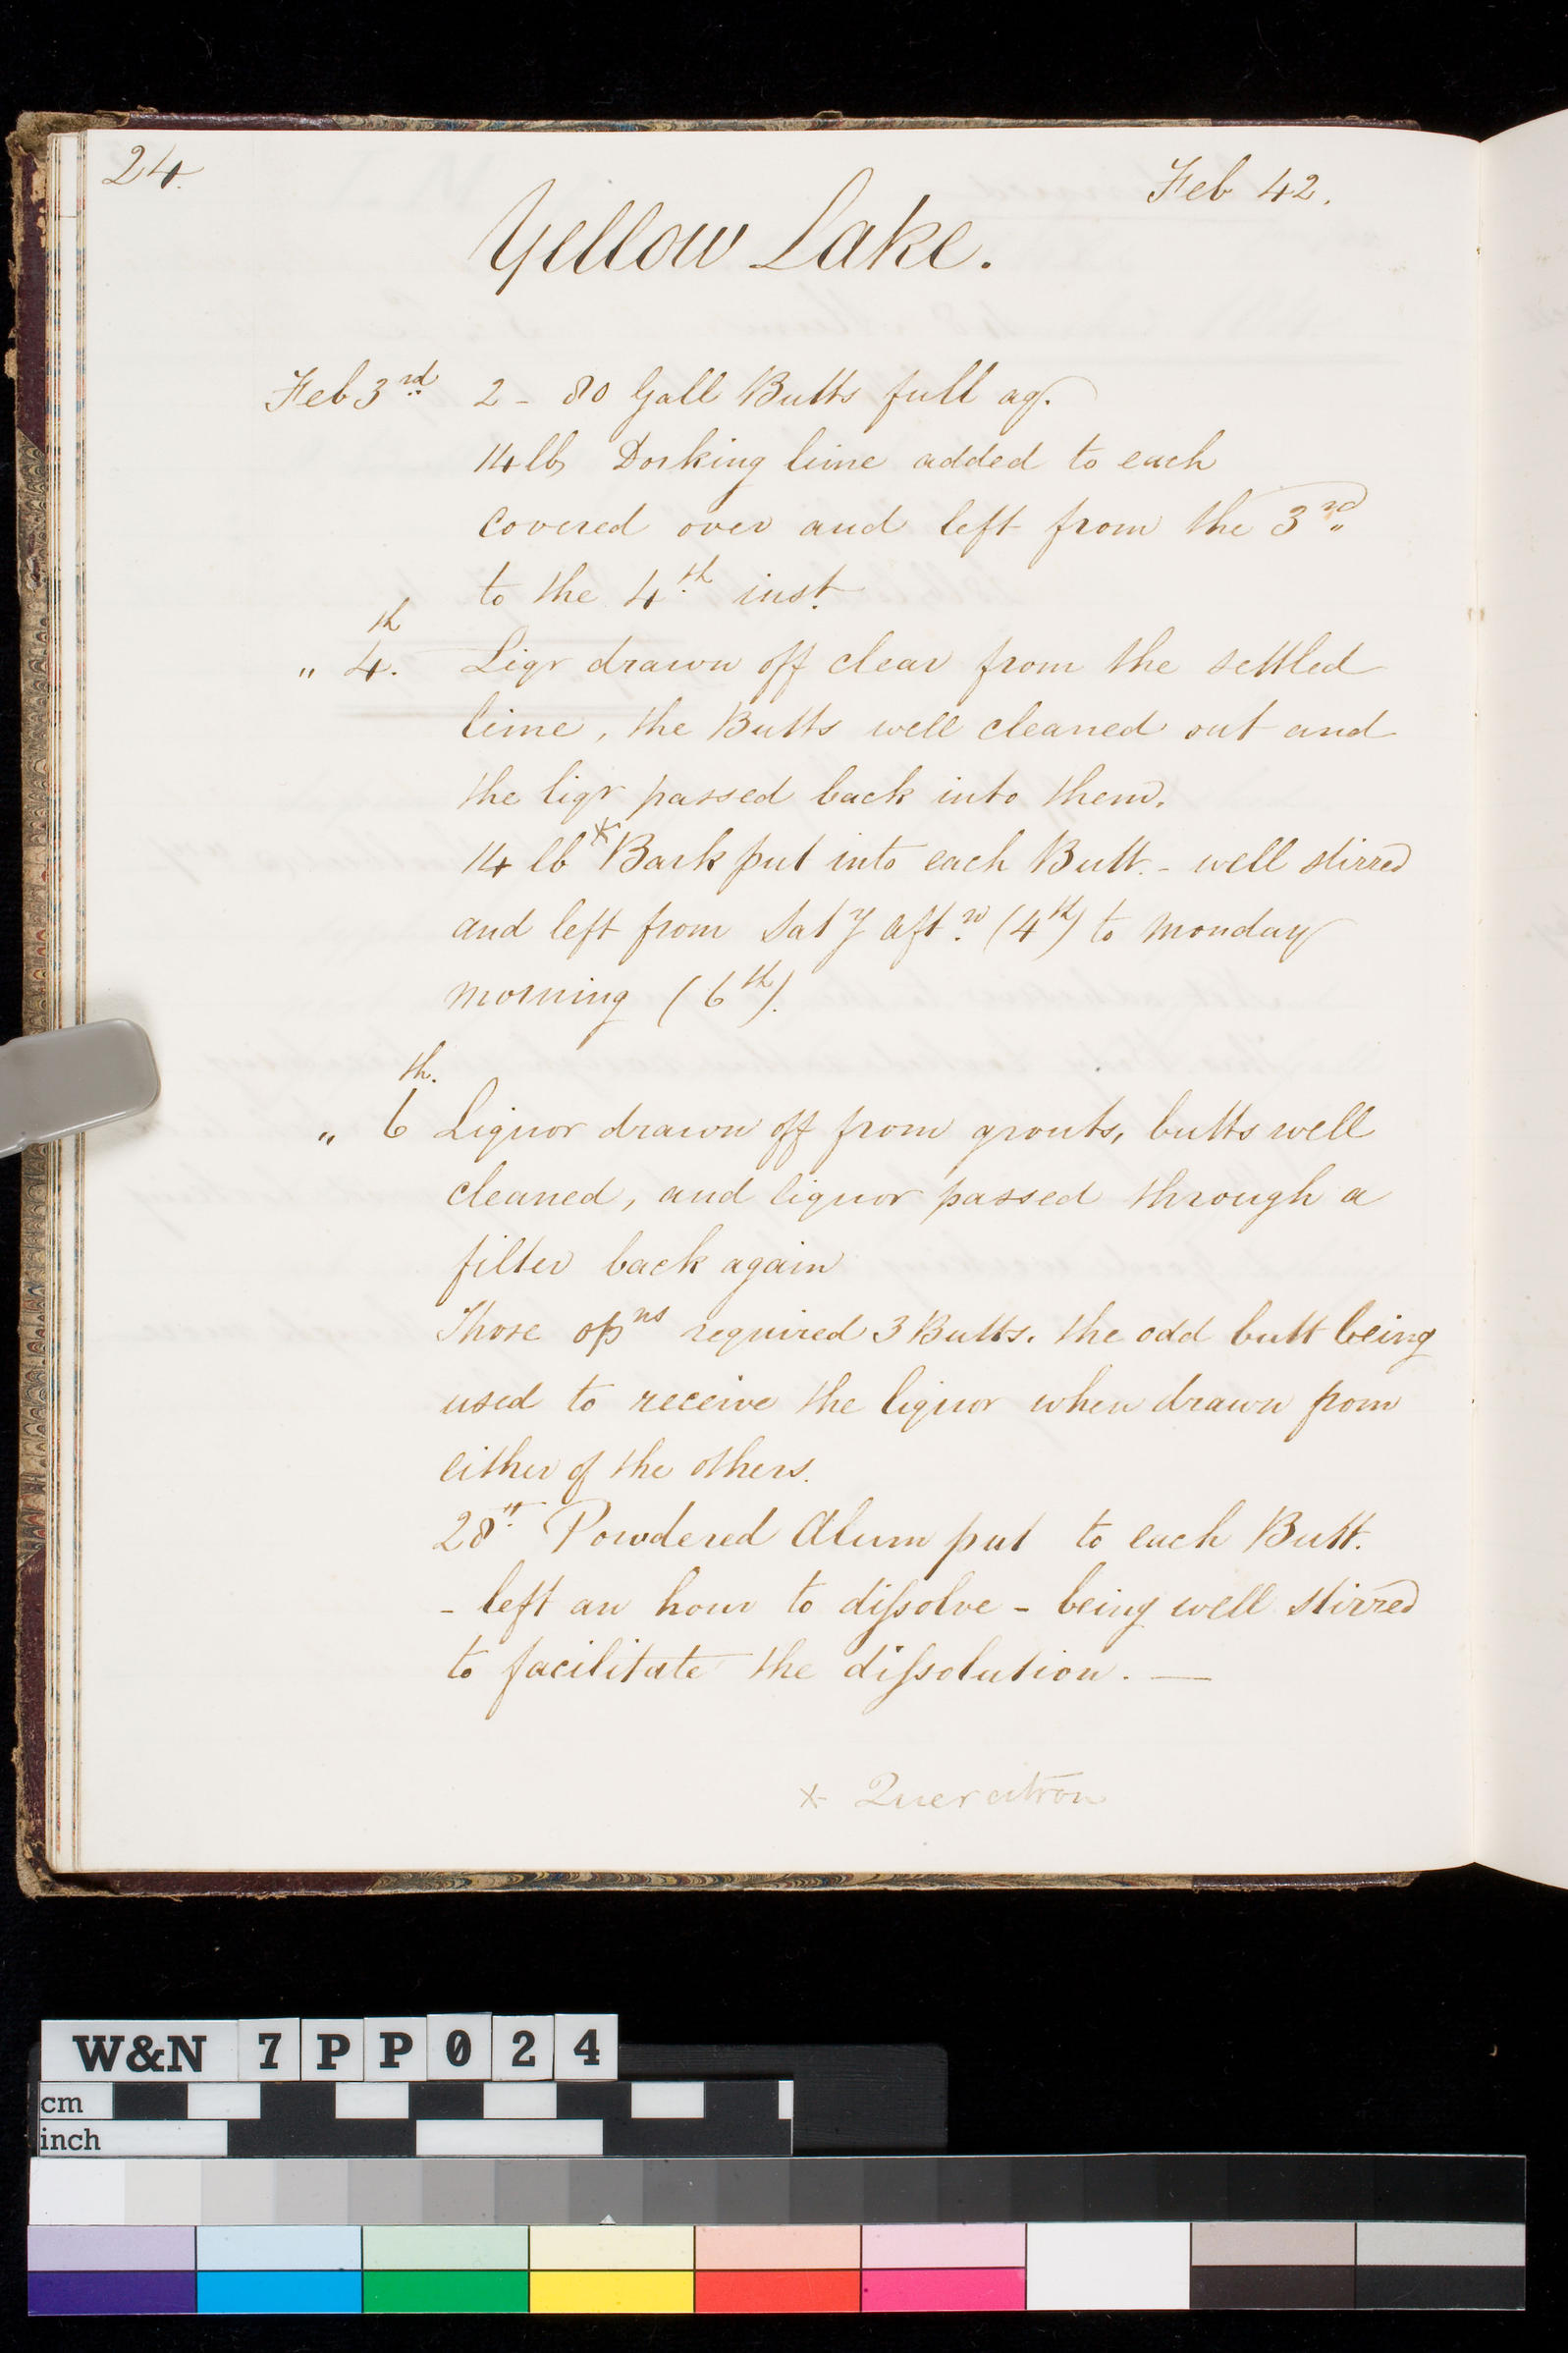 24.
Feb 42.
Yellow Lake.
Feb 3rd 2 - 80 Gall Butts full aq.
14 lbs Dorking lime added to each
covered over and left from the 3rd
to the 4th inst.
" 4th. Liqr drawn off clear from the settled
lime, the Butts well cleaned out and
the liqr passed back into them.
14 lb * Bark put into each Butt. - well stirred
and left from Saty aftn (4th) to Monday
morning (6th).
" 6th. Liquor drawn off from grouts, butts well
cleaned, and liquor passed through a
filter back again
Those opns required 3 Butts. the odd butt being
used to receive the liquor when drawn from
either of the others.
28 Powdered Alum put to each Butt.
- left an hour to dissolve - being well stirred
to facilitate the dissolution. —
* Quercitron
W&N 7PP024
cm
inch